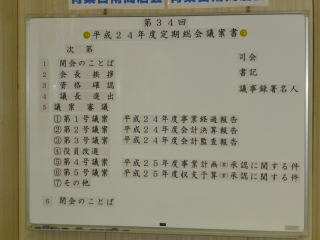 第34回
平成24年度定期総会議案書
次　第
司会
1 開会のことば
書記
2 会長　挨拶
3 資格　確認
議事録署名人
4 議長　選出
5 議案　審議
①第1号議案　平成24年度事業経過報告
②第2号議案　平成24年度会計決算報告
③第3号議案　平成24年度会計監査報告
④役員改選
⑤第4号議案　平成25年度事業計画(案)承認に関する件
⑥第5号議案　平成25年度収支予算(案)承認に関する件
⑦その他
6 閉会のことば